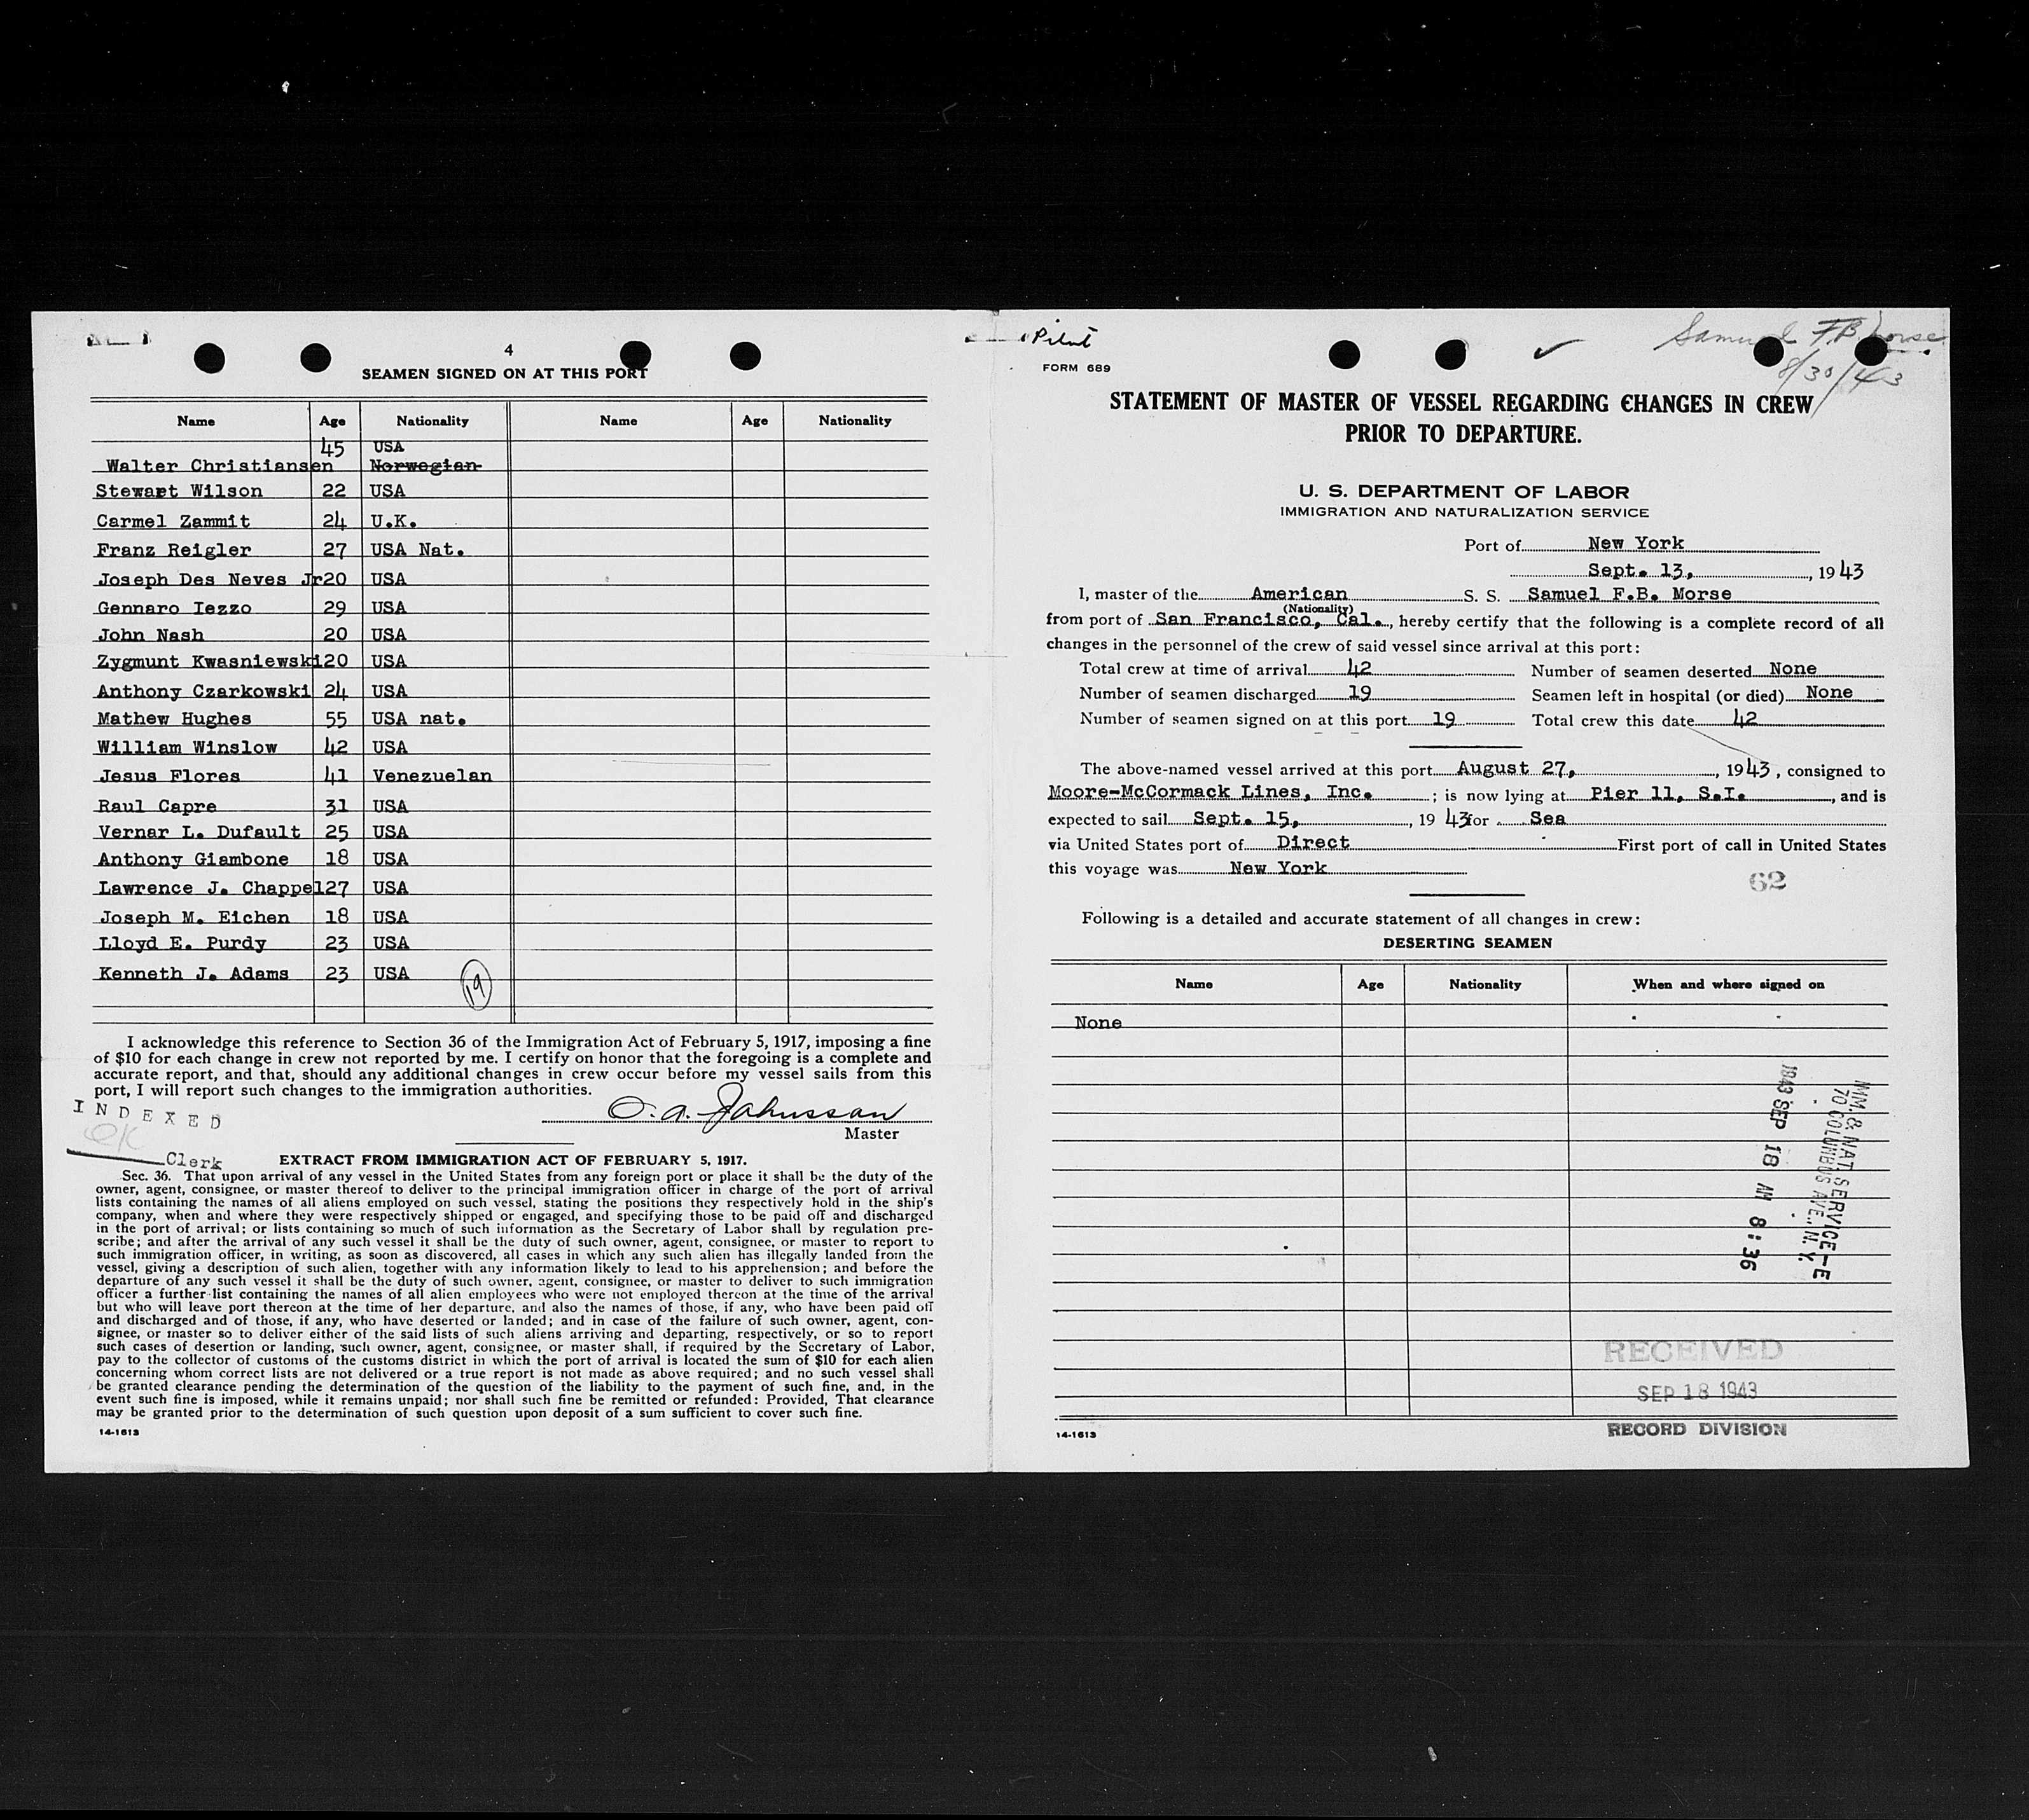 4
SEAMEN SIGNED ON AT THIS PORT
Name Age Nationality Name Age Nationality
Walter Christiansen 45 USA Norwegian
Stewart Wilson 22 USA
Carmel Zammit 24 U.K.
Franz Reigler 27 USA Nat.
Joseph Des Neves Jr 20 USA
Gennaro Iezzo 29 USA
John Nash 20 USA
Zygmunt Kwasniewski 20 USA
Anthony Czarkowski 24 USA
Mathew Hughes 55 USA nat.
William Winslow 42 USA
Jesus Flores 41 Venezuelan
Raul Capre 31 USA
Vernar L. Dufault 25 USA
Anthony Giambone 18 USA
Lawrence J. Chappel 27 USA
Joseph M. Eichen 18 USA
Lloyd E. Purdy 23 USA
Kenneth J. Adams 23 USA
19
I acknowledge this reference to Section 36 of the Immigration Act of February 5, 1917, imposing a fine
of $10 for each change in crew not reported by me. I certify on honor that the foregoing is a complete and
accurate report, and that, should any additional changes in crew occur before my vessel sails from this
port, I will report such changes to the immigration authorities.
O. A. Johnssan
Master
INDEXED
OK
Clerk
EXTRACT FROM IMMIGRATION ACT OF FEBRUARY 5, 1917.
Sec. 36. That upon arrival of any vessel in the United States from any foreign port or place it shall be the duty of the
owner, agent, consignee, or master thereof to deliver to the principal immigration officer in charge of the port of arrival
lists containing the names of all aliens employed on such vessel, stating the positions they respectively hold in the ship's
company, when and where they were respectively shipped or engaged, and specifying those to be paid off and discharged
in the port of arrival; or lists containing so much of such information as the Secretary of Labor shall by regulation pre-
scribe; and after the arrival of any such vessel it shall be the duty of such owner, agent, consignee, or master to report to
such immigration officer, in writing, as soon as discovered, all cases in which any such alien has illegally landed from the
vessel, giving a description of such alien, together with any information likely to lead to his apprehension; and before the
departure of any such vessel it shall be the duty of such owner, agent, consignee, or master to deliver to such immigration
officer a further list containing the names of all alien employees who were not employed thereon at the time of the arrival
but who will leave port thereon at the time of her departure, and also the names of those, if any, who have been paid off
and discharged and of those, if any, who have deserted or landed; and in case of the failure of such owner, agent, con-
signee, or master so to deliver either of the said lists of such aliens arriving and departing, respectively, or so to report
such cases of desertion or landing, such owner, agent, consignee, or master shall, if required by the Secretary of Labor,
pay to the collector of customs of the customs district in which the port of arrival is located the sum of $10 for each alien
concerning whom correct lists are not delivered or a true report is not made as above required; and no such vessel shall
be granted clearance pending the determination of the question of the liability to the payment of such fine, and, in the
event such fine is imposed, while it remains unpaid; nor shall such fine be remitted or refunded: Provided, That clearance
may be granted prior to the determination of such question upon deposit of a sum sufficient to cover such fine.
14-1613
Pilot
Samuel F.B. Morse
8/30/43
FORM 689
STATEMENT OF MASTER OF VESSEL REGARDING CHANGES IN CREW
PRIOR TO DEPARTURE.
U. S. DEPARTMENT OF LABOR
IMMIGRATION AND NATURALIZATION SERVICE
Port of New York
Sept. 13, , 1943
I, master of the American S. S. Samuel F.B. Morse
(Nationality)
from port of San Francisco, Cal. , hereby certify that the following is a complete record of all
changes in the personnel of the crew of said vessel since arrival at this port:
Total crew at time of arrival 42 Number of seamen deserted None
Number of seamen discharged 19 Seamen left in hospital (or died) None
Number of seamen signed on at this port 19 Total crew this date 42
The above-named vessel arrived at this port August 27, , 1943, consigned to
Moore-McCormack Lines, Inc. ; is now lying at Pier 11, S.I. , and is
expected to sail Sept. 15, , 1943 for Sea
via United States port of Direct First port of call in United States
this voyage was New York
62
Following is a detailed and accurate statement of all changes in crew:
DESERTING SEAMEN
Name Age Nationality When and where signed on
None
IMM. & NAT. SERVICE-E
70 COLUMBUS AVE., N. Y.
1943 SEP 18 AM 8:36
RECEIVED
SEP 18 1943
RECORD DIVISION
14-1613